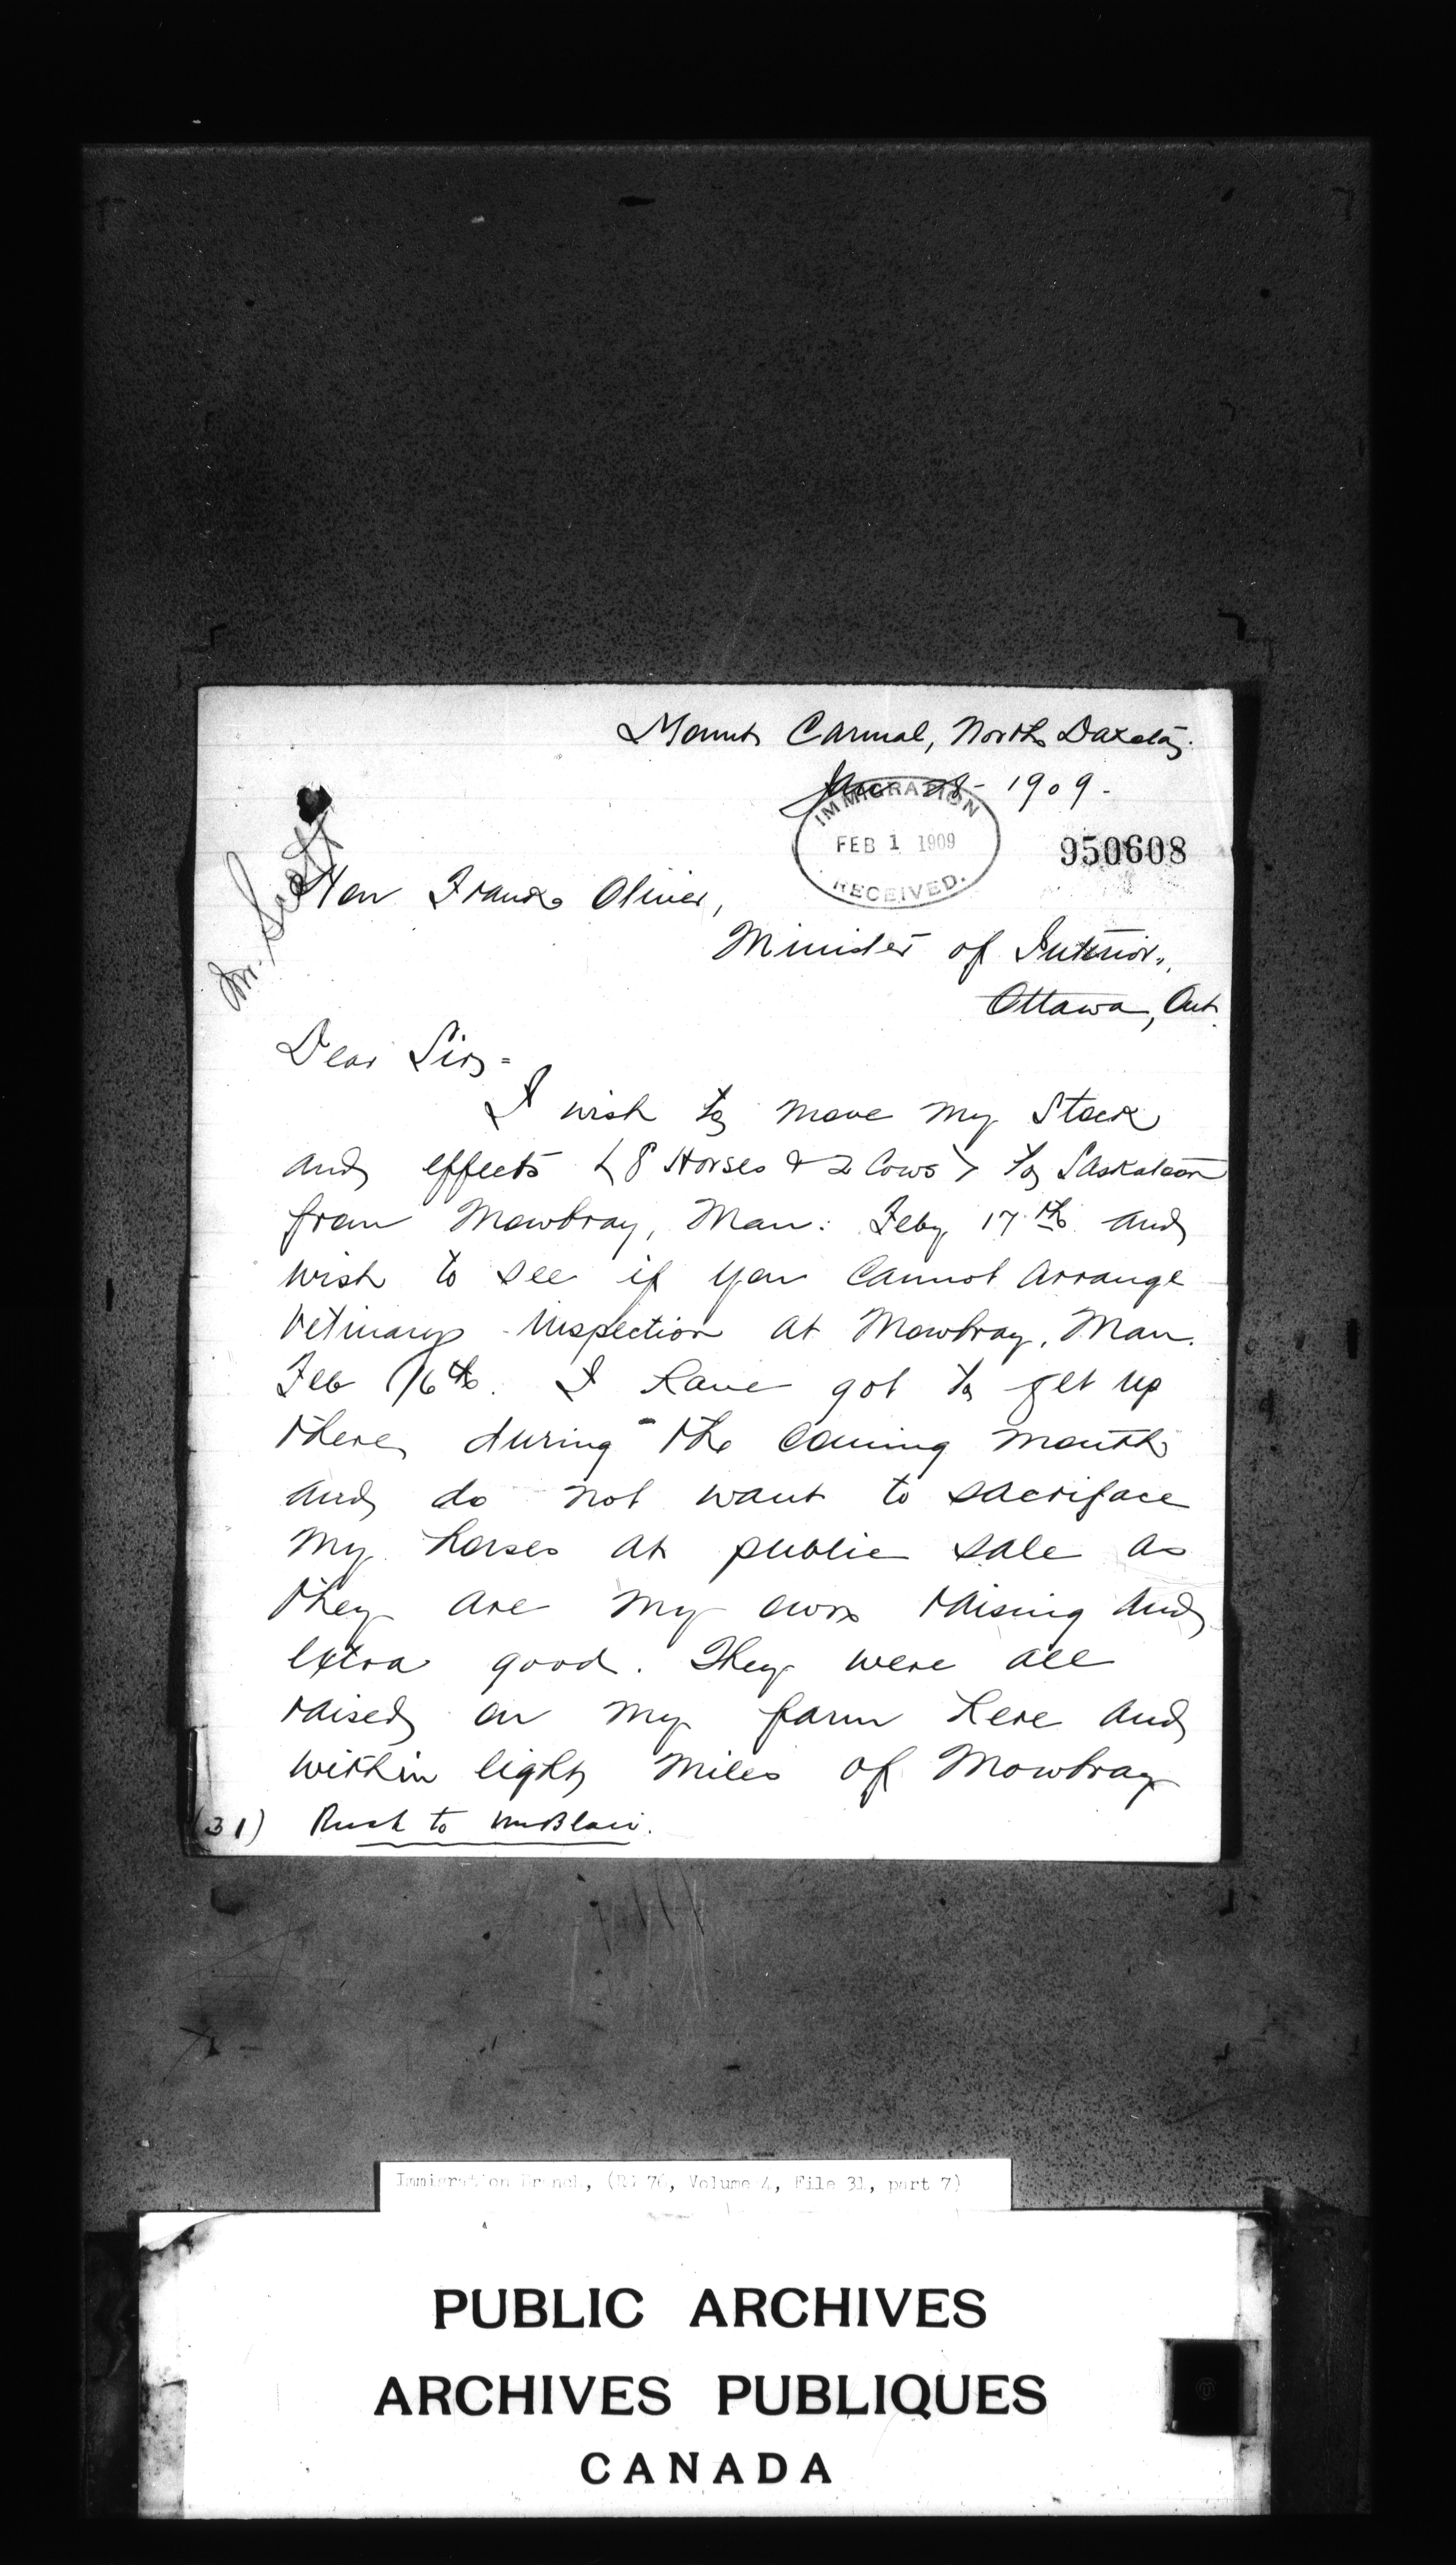 Mount Carmal, North Dakota,
Jan 28 - 1909 -
IMMIGRATION
FEB 1 1909
RECEIVED.
950608
Mr. Scott
Hon Frank Oliver,
Minister of Interior,
Ottawa, Ont.
Dear Sir, =
I wish to move my Stock
and effects (8 Horses & 2 Cows) to Saskatoon
from Mowbray, Man: Feby 17th and
wish to see if you cannot arrange
Vetinary inspection at Mowbray, Man.
Feb 16th. I have got to get up
there during the coming month
and do not want to sacriface
my horses at public sale as
they are my own raising and
extra good. They were all
raised on my farm here and
within eight miles of Mowbray
(31) Rush to Mr Blair.
Immigration Branch, (RG 76, Volume 4, File 31, part 7)
PUBLIC ARCHIVES
ARCHIVES PUBLIQUES
CANADA